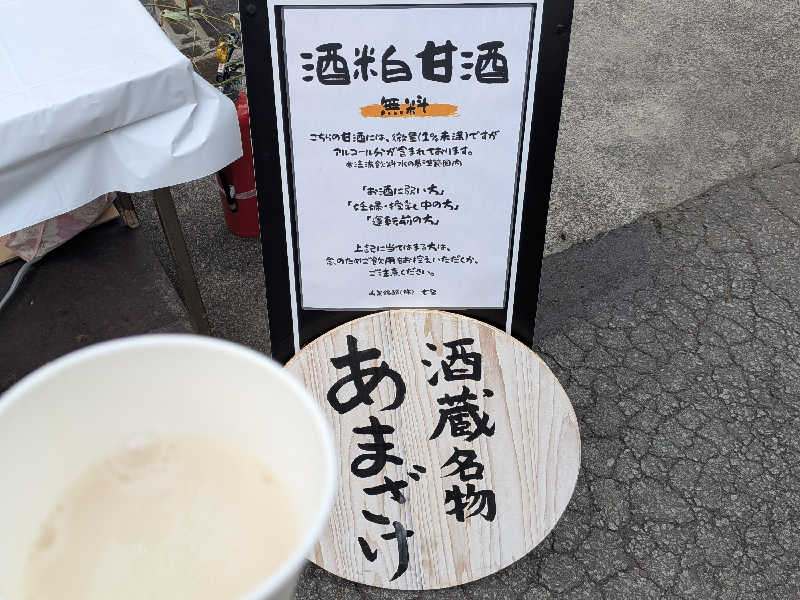 酒粕甘酒
無料
こちらの甘酒には、微量(1%未満)ですが
アルコール分が含まれております。
※清涼飲料水の基準範囲内
「お酒に弱い方」
「妊婦・授乳中の方」
「運転前の方」
上記に当てはまる方は、
念のためご飲用をお控えいただくか、
ご注意ください。
酒蔵名物
あまざけ